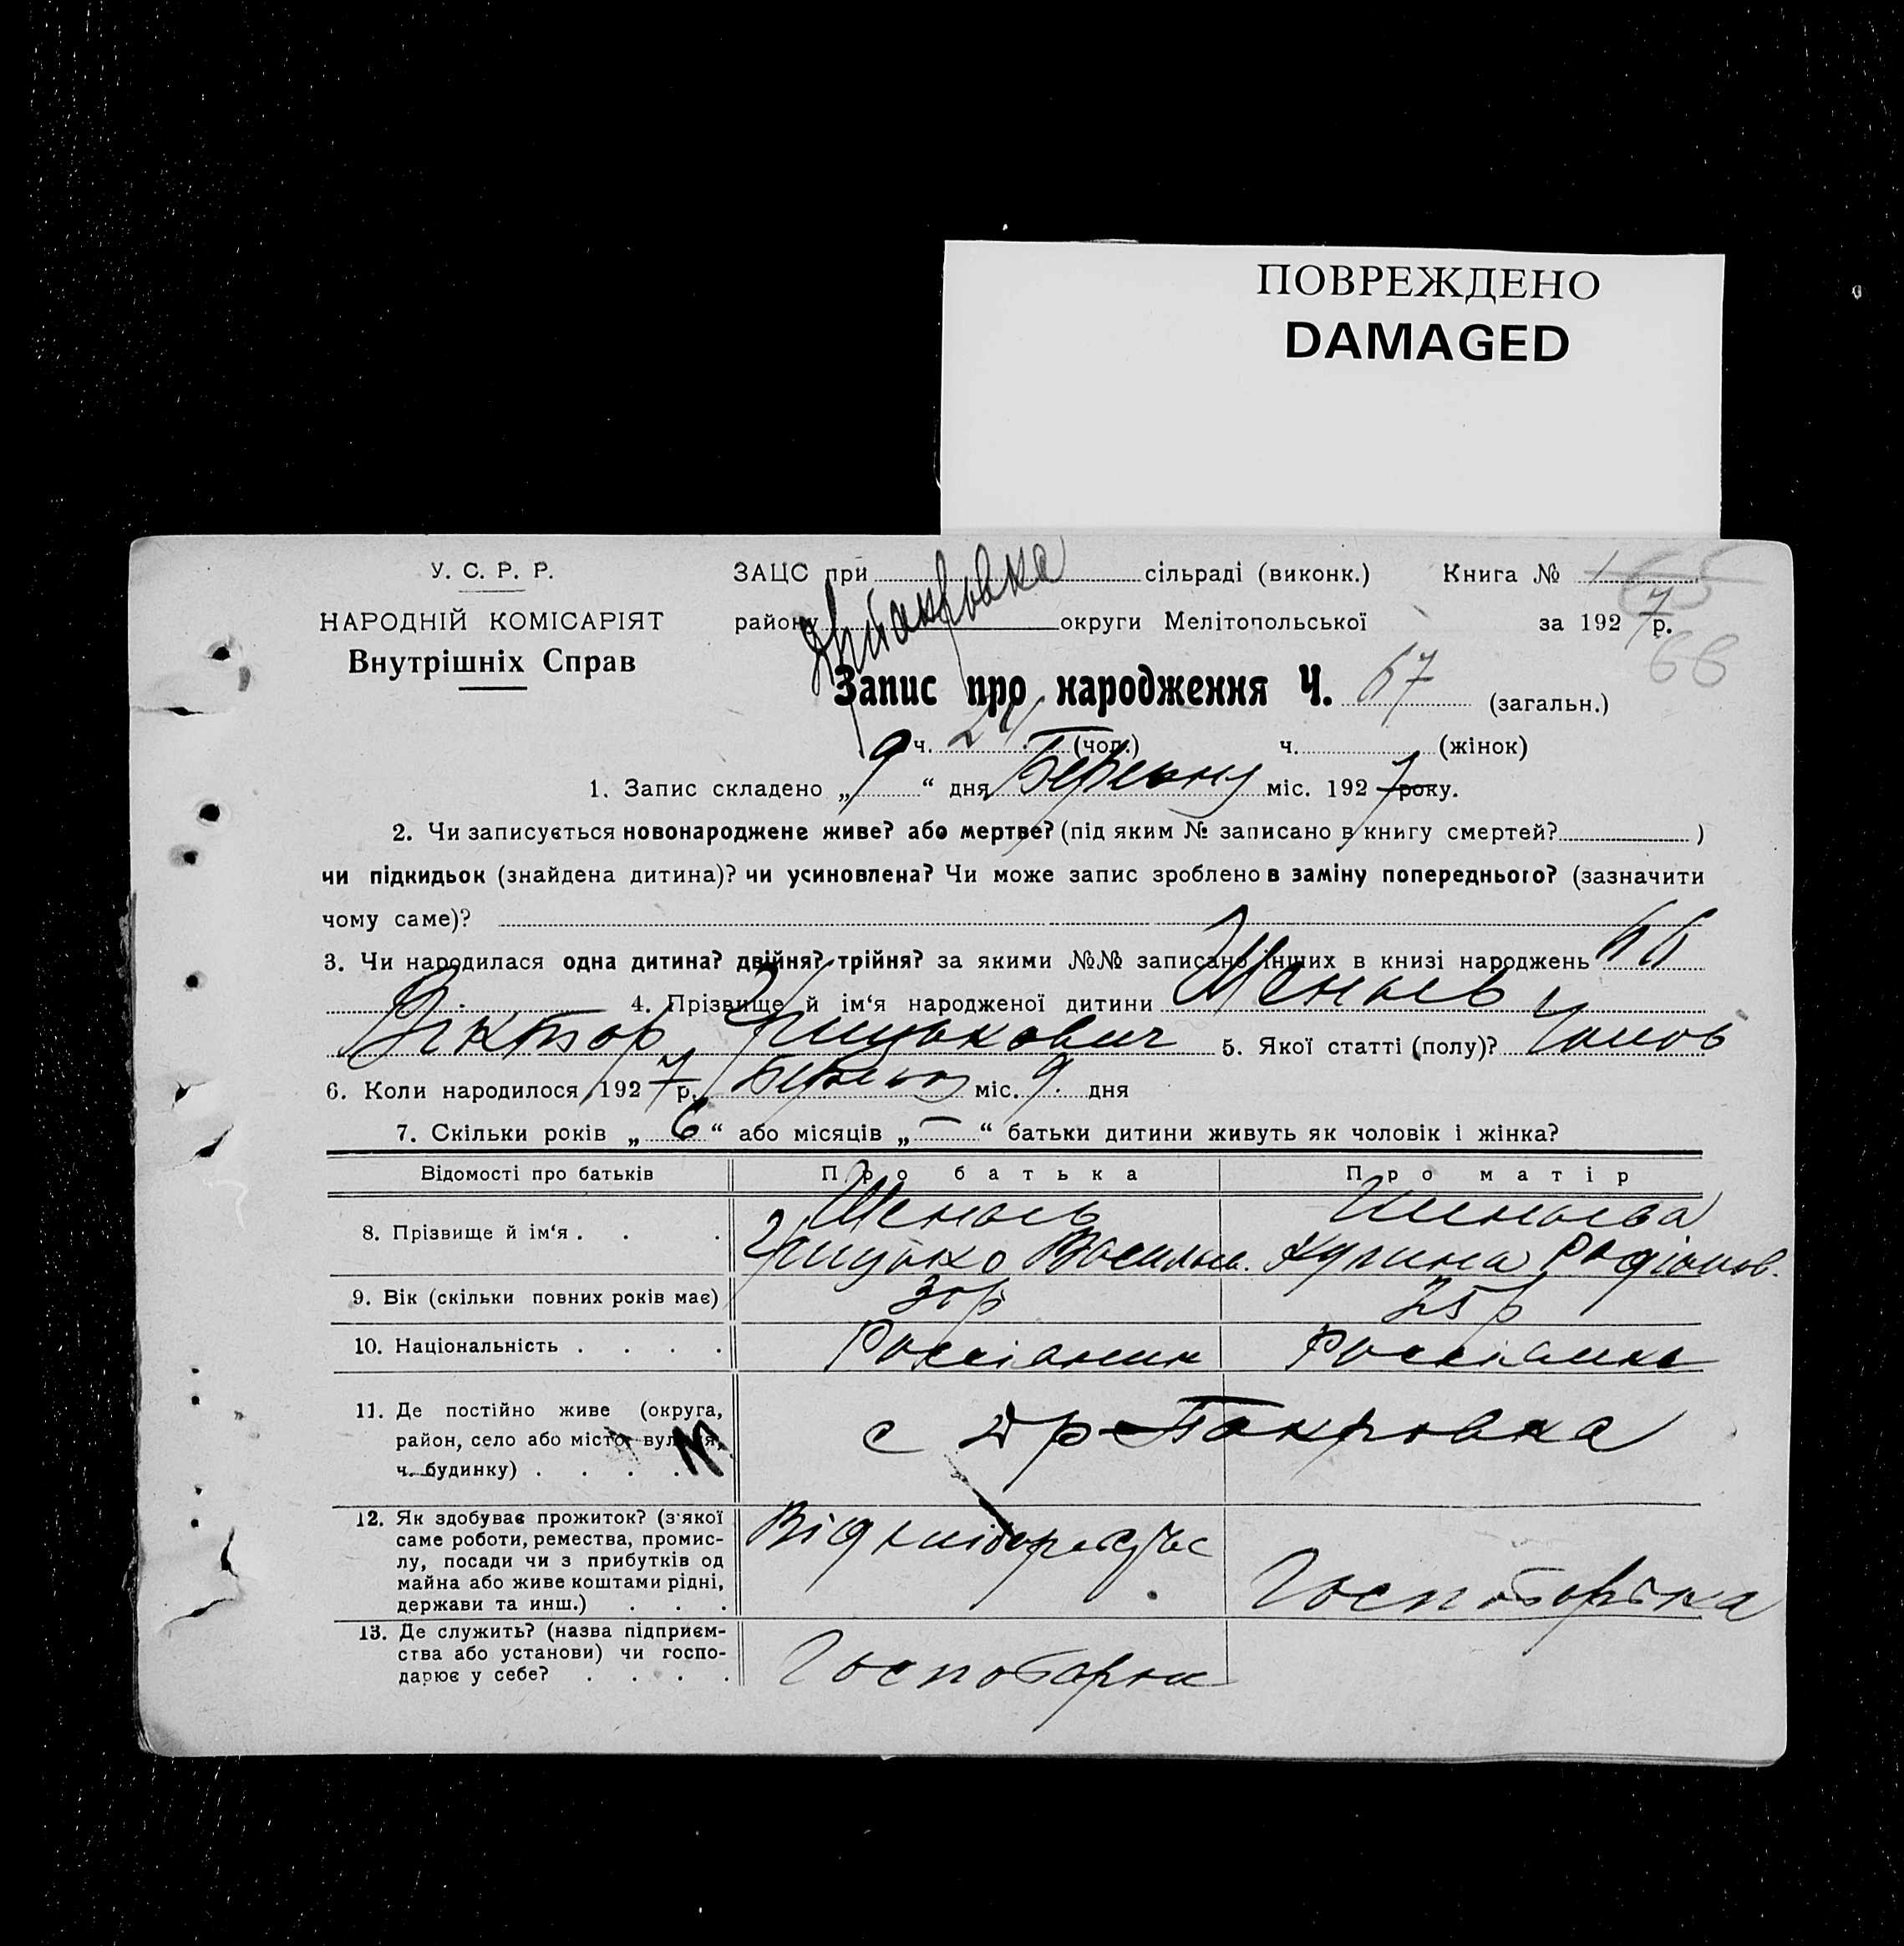 ПОВРЕЖДЕНО
DAMAGED
У. С. Р. Р.
НАРОДНІЙ КОМІСАРІЯТ
Внутрішніх Справ
ЗАЦС при сільраді (виконк.) Книга № 1
району округи Мелітопольської за 1927 р.
65
66
Запис про народження Ч. 67 (загальн.)
ч. (чол.) ч. (жінок)
1. Запис складено „9“ дня Березню міс. 1927 року.
2. Чи записується новонароджене живе? або мертве? (під яким № записано в книгу смертей? )
чи підкидьок (знайдена дитина)? чи усиновлена? Чи може запис зроблено в заміну попереднього? (зазначити
чому саме)?
3. Чи народилася одна дитина? двійня? трійня? за якими №№ записано інших в книзі народжень 66
4. Прізвище й ім‘я народженої дитини
Віктор Грицькович 5. Якої статті (полу)? Чолов
6. Коли народилося 1927 р. міс. 9 дня
7. Скільки років „6“ або місяців „—“ батьки дитини живуть як чоловік і жінка?
Відомості про батьків Про батька Про матір
8. Прізвище й ім‘я . . .
Грицько Васильов. Родіонов.
9. Вік (скільки повних років має) 30 р 25 р
10. Національність . . . . Россіанин Россіанка
11. Де постійно живе (округа,
район, село або місто, вулиця,
ч. будинку) . . . .
с Покровка
12. Як здобуває прожиток? (з'якої
саме роботи, ремества, промис-
лу, посади чи з прибутків од
майна або живе коштами рідні,
держави та инш.) . . .
Від хліборобства
Господарька
13. Де служить? (назва підприєм-
ства або установи) чи госпо-
дарює у себе? . . . .